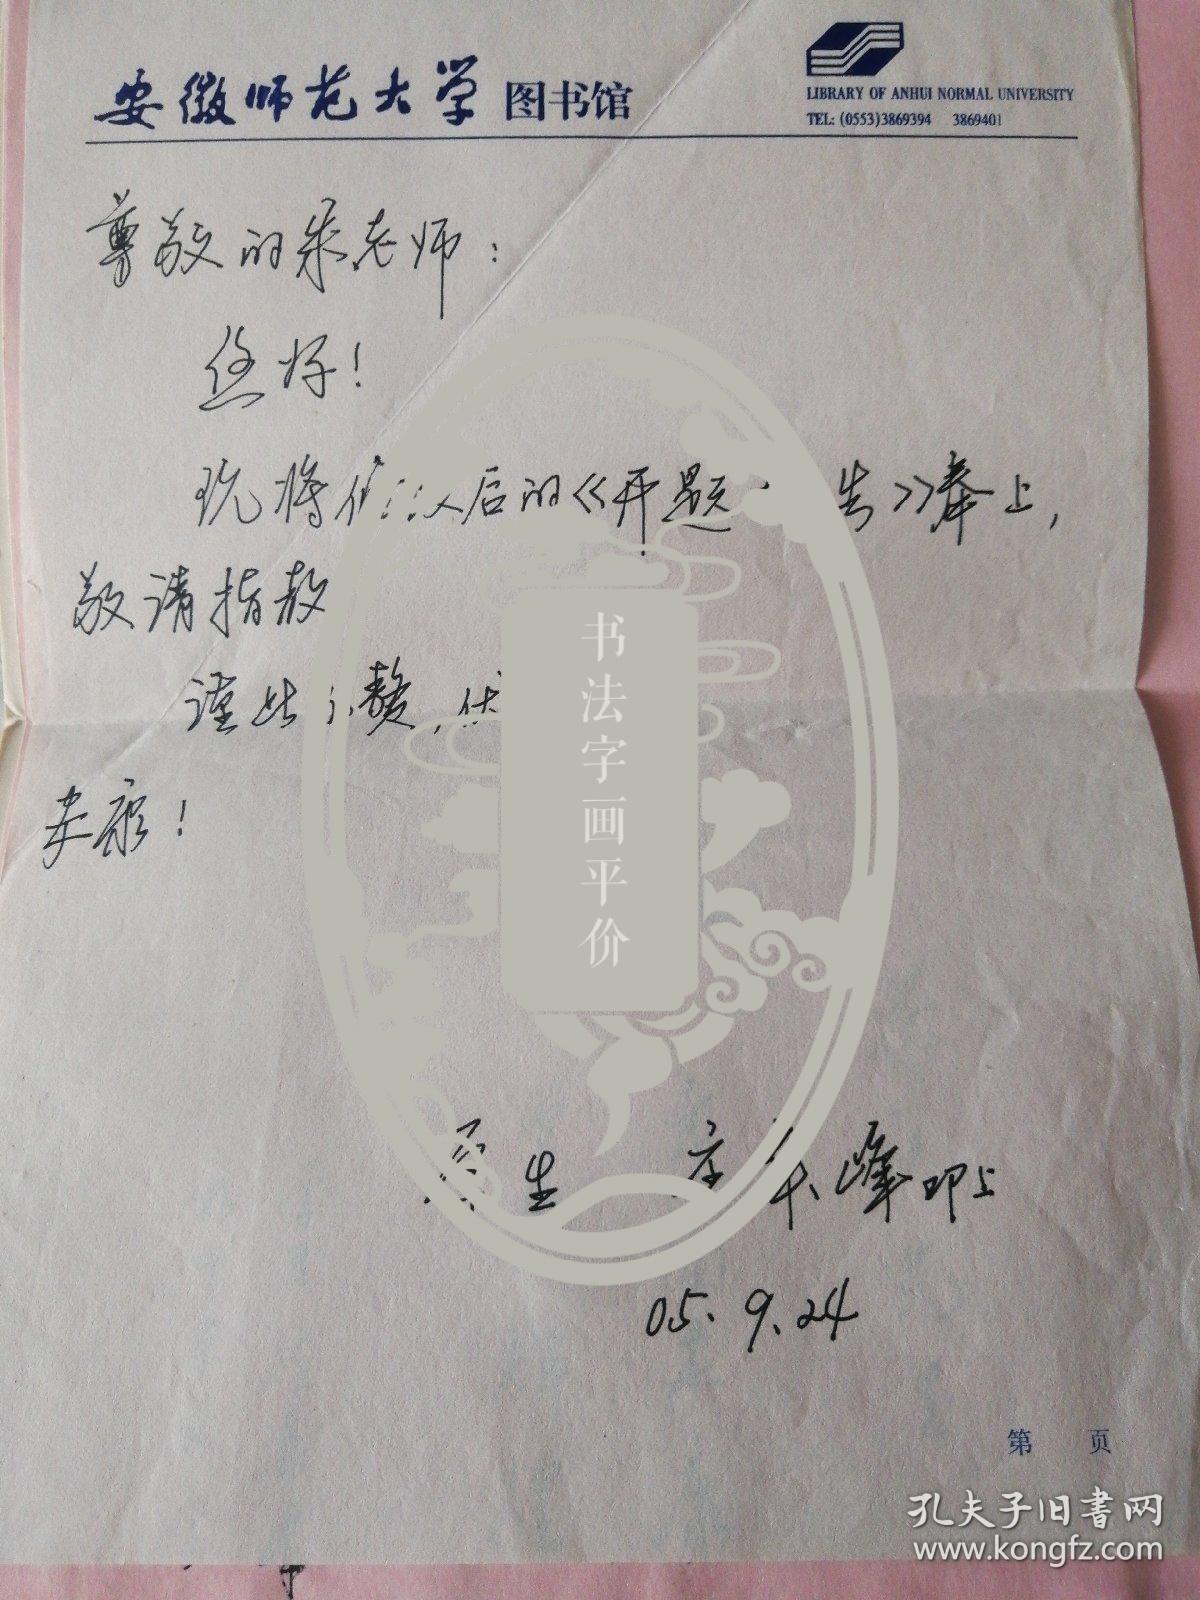 安徽师范大学 图书馆
LIBRARY OF ANHUI NORMAL UNIVERSITY
TEL: (0553)3869394 3869401
尊敬的朱老师：
您好！
现将修改后的《开题告》奉上，
敬请指教
谨此 赘，伏
未宸！
书法字画平价
生 峰叩上
05.9.24
第 页
孔夫子旧书网
www.kongfz.com